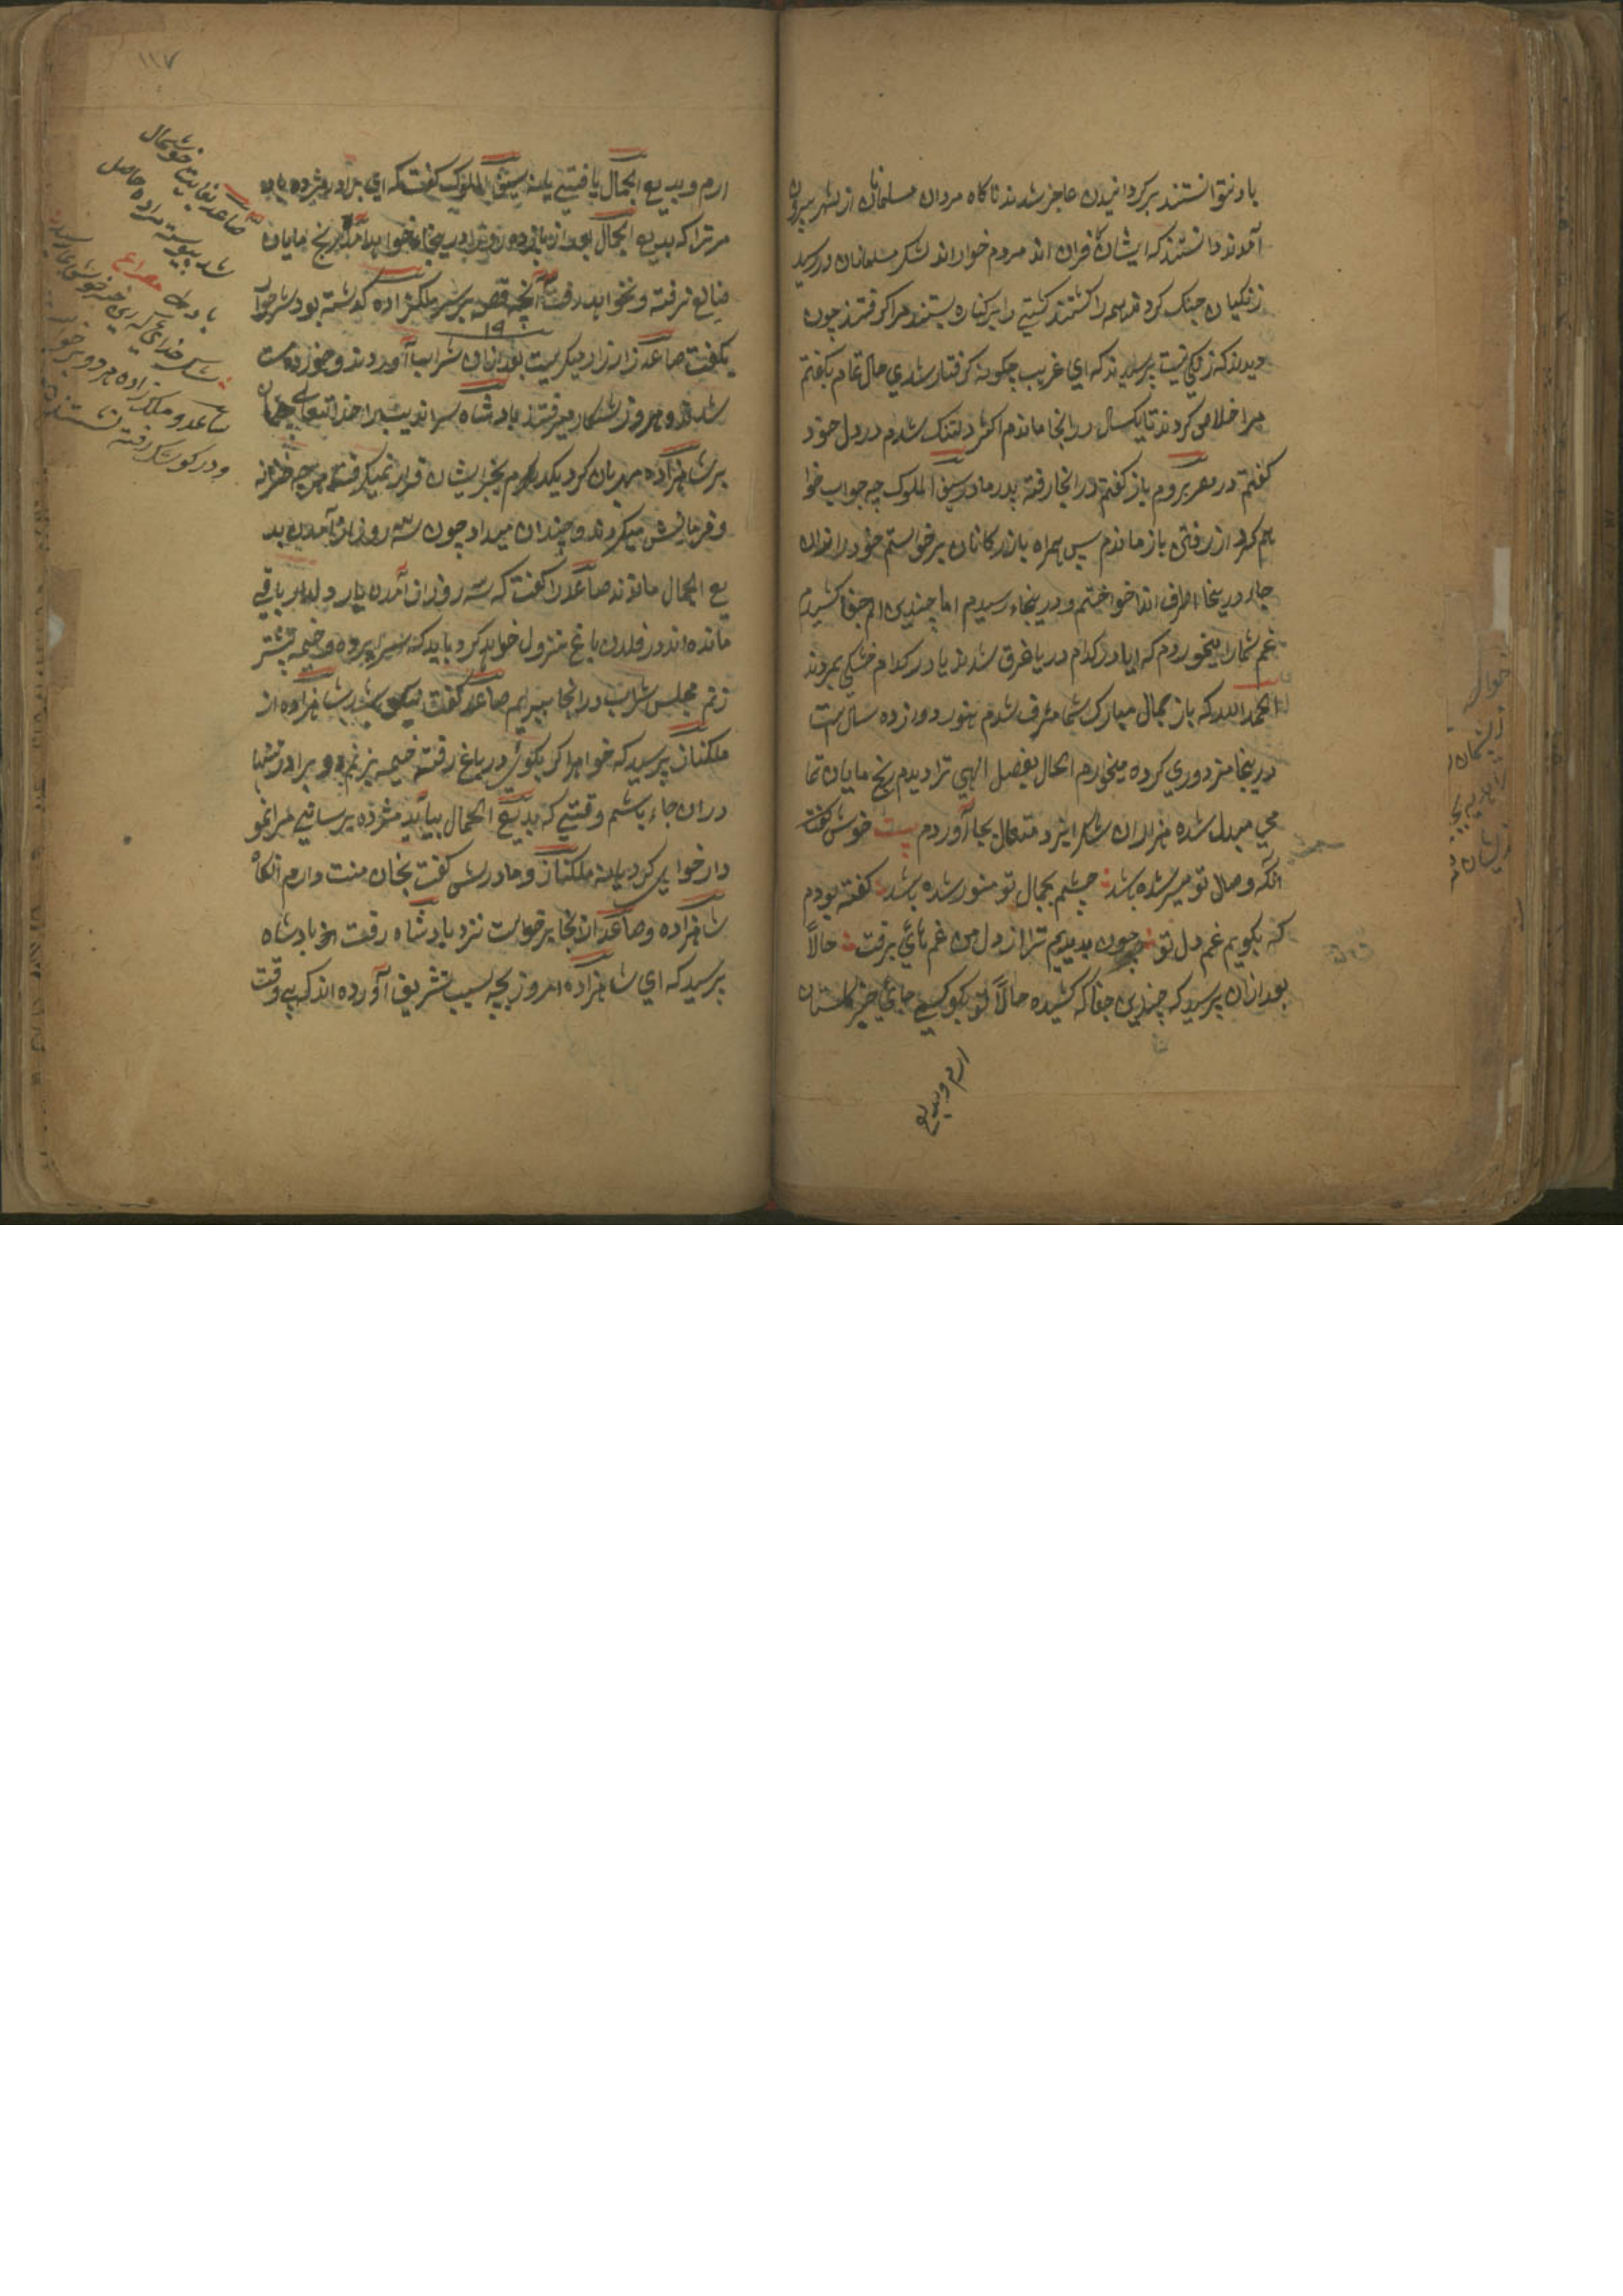 باد نتوانستند برگردانیدن عاجز شدند ناکاه مردان مسلمانان از شهر بیرون
آمدند دانستند که ایشان کافران اند مردم خوار اند لشکر مسلمانان در رسید
زنکیان جنک کردند همه را کشتند کشتی را بر کناره بستند مرا گرفتند چون
دیدند که زنکی نیست پرسیدند که ای غریب چکونه کرفتار شدی حال تمام بگفتم
مرا خلاص کردند تا یکسال در انجا ماندم اکثر دلتنک شدم در دل خود
کفتم در مصر بروم باز کفتم در انجا رفته پدر مادر سیف الملوک چه جواب خوا
هم کرد از رفتن باز ماندم پس همراه بازرکانان برخواستم خود را دران
جا در ینجا اطراف انداخواختم و درینجاء رسیدم اما چندین الم جفا کشیدم
غم شما را میخوردم که ایا در کدام دریا غرق شدند یا در کدام خشکی بمردند
الحمد الله که باز بجمال مبارک شما مشرف شدم هنوز دوازده سال است
درینجا مزدوری کرده میخورم الحال بفضل الهی ترا دیدم رنج مایان تما
می مبدل شده هزاران شکر ایزد متعال بجا آوردم بیت خوش کفت
انکه وصال تو میسر شده باشد چشمم بجمال تو منور شده باشد کفته بودم
که بکویم غم دل تو چون بدیدیم ترا از دل من غم هائی برفت حالاً
بعد ازان پرسید که چندین جفا که کشیده حالاً تو بکو کسی جائی خبر کلستان
ارم و بدیع
۱۲۷
ارم و بدیع الجمال یافتی یا نه سیف الملوک کفت که ای برادر مژده باد
مر ترا که بدیع الجمال بعد از پانزده روز درینجا خواهد آمد رنج مایان
ضایع نرفته و نخواهد رفت آنچه قصه بر سر ملکزاده کذشته بود شرحوار
۱۹
بکفت صاعد زار زار میکریست بعد ازان شراب آوردند و خوردند مست
شدند و هر روز شکار میرفتند بادشاه سراندیب را خدا تعالی چنان
بر شاهزاده مهربان کرد یکدم بجز ایشان قرار نمیکرفت هر چه خزانه
و فرمایش میکردند دو چندان میداد چون سه روز از آمدن بد
یع الجمال ماندند صاعد را کفت که سه روز از آمدن یار دلدار باقی
مانده اند در فلان باغ نزول خواهد کرد باید که سراپرده و خیمه پیشتر
زنم مجلس شراب در انجا ببریم صاعد کفت نیکو باشد شاهزاده از
ملکناز پرسید که خواهر اکر بکوئی در باغ رفته خیمه بزنم دو برادر تنها
دران جاء باشم وقتی که بدیع الجمال بیاید مژده برسانی مرا نمو
دار خواهی کرد یا نه ملکناز و مادرش کفت بجان منت دارم انکاه
شاهزاده و صاعد از انجا برخواست نزد بادشاه رفت بخ بادشاه
پرسید که ای شاهزاده امروز بچه سبب تشریف آورده اند که بی وقت
صاعد بغایت خوشحال
شد پیوسته مراد حاصل
باد مصراع
ساعد و ملکزاده هر دو برخوا
و در کوشک رفته نشستند